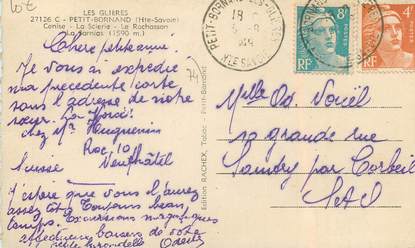 10€
LES GLIERES
27126 C - PETIT-BORNAND (Hte-Savoie)
Cenise - La Scierie - Le Rochasson
La Jarnias (1590 m.)
Chère petite amie.
Je vous ai expédié
ma précédente carte
sous l'adresse de notre
sœur.
chez Mr Huguenin
Roc. 10
Suisse Neufhâtel
J'espère que vous l'aurez
assez tôt. Toujours beau
temps. Excursions magnifiques
affectueux baisers de votre
petite hirondelle Odette
74
Edition RACHEX, Tabac - Petit-Bornand
PETIT-BORNAND-LES-GLIERES
18
HTE SAVOIE
RF 8F
RF 4F
Melle Od.
10 grande rue
par Corbeil
S et O